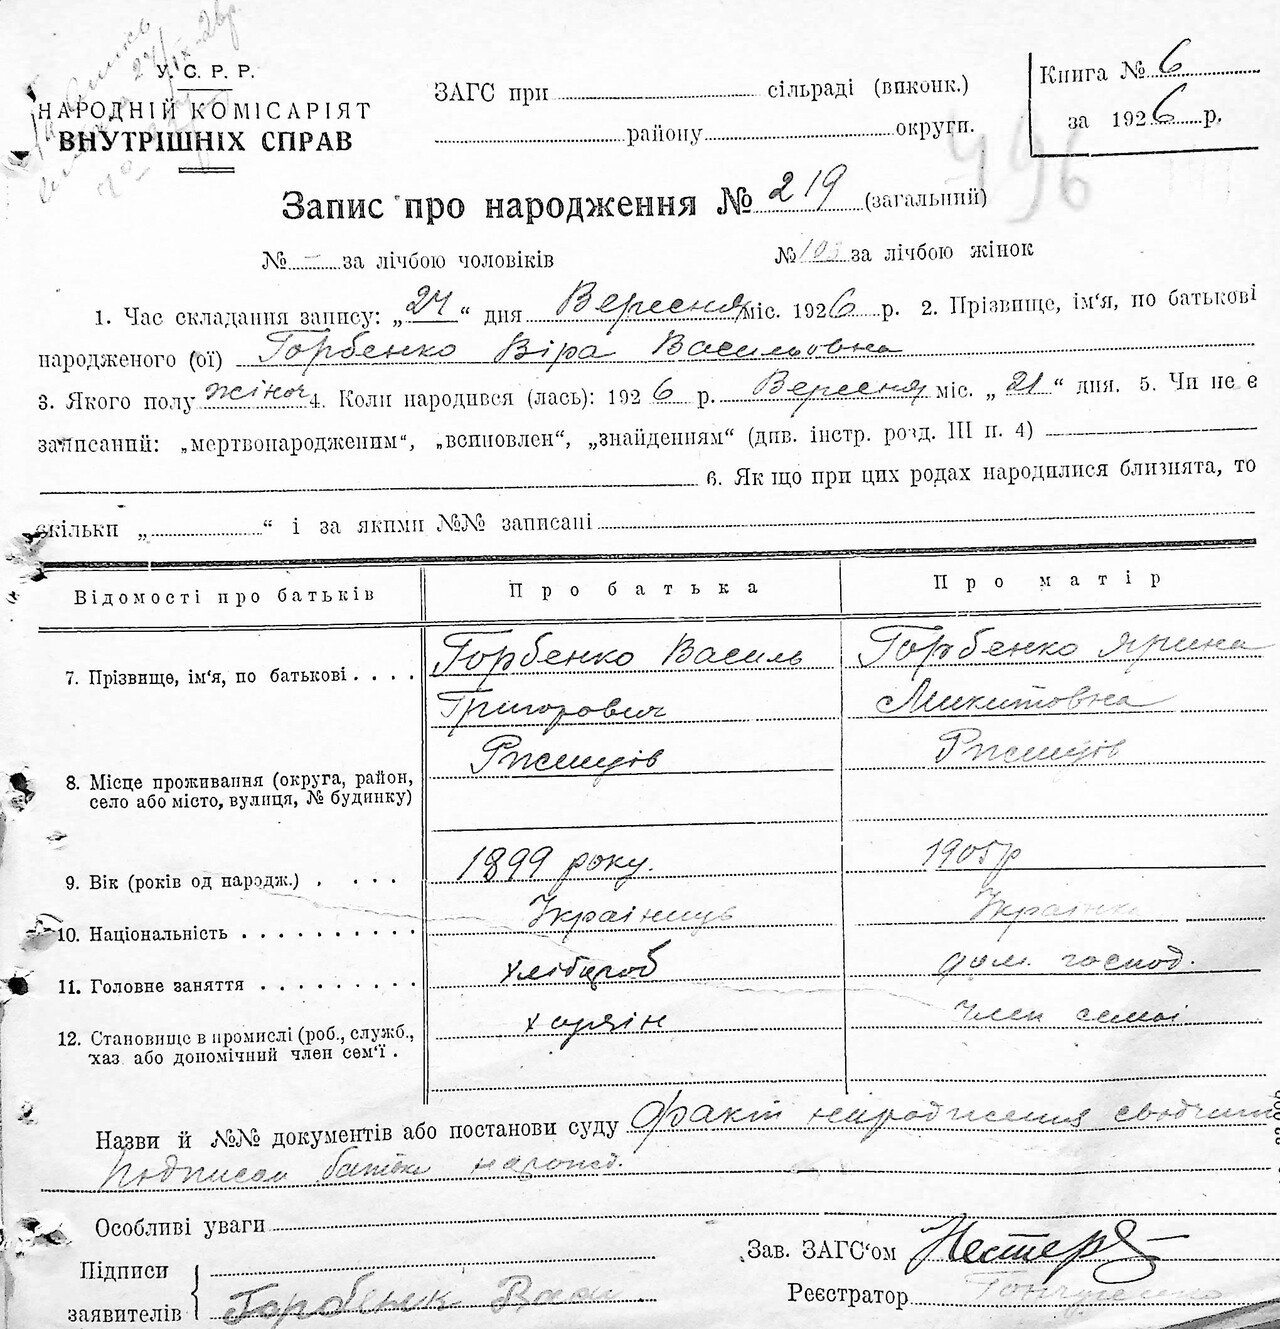 У. С. Р. Р.
НАРОДНІЙ КОМІСАРІЯТ
ВНУТРІШНІХ СПРАВ
ЗАГС при сільраді (виконк.)
району округи.
Книга № 6
за 1926 р.
496
Запис про народження № 219 (загальний)
№ - за лічбою чоловіків № 103 за лічбою жінок
1. Час складання запису: „24“ дня Вересня міс. 1926 р. 2. Прізвище, ім'я, по батькові
народженого (ої) Горбенко Віра Васильовна
3. Якого полу жіноч 4. Коли народився (лась): 1926 р. Вересня міс. „21“ дня. 5. Чи не є
записаний: „мертвонародженим“, „всиновлен“, „знайденням“ (див. інстр. розд. III п. 4)
6. Як що при цих родах народилися близнята, то
скільки „ “ і за якими №№ записані
Відомості про батьків Про батька Про матір
7. Прізвище, ім'я, по батькові . . . . Горбенко Василь Горбенко Ярина
Григорович Микитовна
8. Місце проживання (округа, район, Ржищів Ржищів
село або місто, вулиця, № будинку)
9. Вік (років од народж.) . . . . 1899 року. 1905р
10. Національність . . . . . . . . . . Українець Українка
11. Головне заняття . . . . . . . . . Хлібороб дом. господ.
12. Становище в промислі (роб., служб., хазяін Член семьі
хаз або допомічний член сем'ї .
Назви й №№ документів або постанови суду Факт народження свідчит
подписом батьки
Особливі уваги
Підписи
заявителів Горбенк Васи
Зав. ЗАГС'ом Нестер
Реєстратор